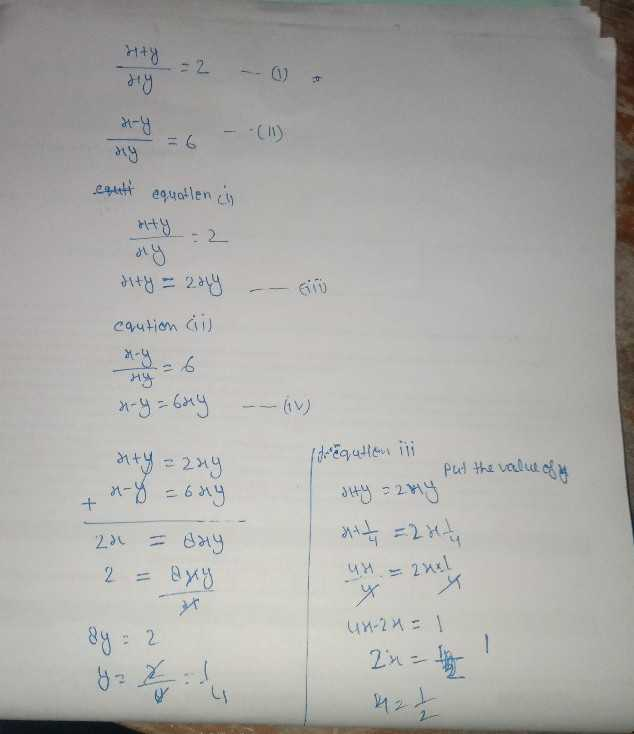 x+y/xy = 2 --- (i)
x-y/xy = 6 --- (ii)
equation (i)
x+y/xy = 2
x+y = 2xy --- (iii)
eqution (ii)
x-y/xy = 6
x-y = 6xy --- (iv)
x+y = 2xy
+ x-y = 6xy
2x = 8xy
2 = 8xy/x
8y = 2
y = 2/8 = 1/4
Equation iii
put the value of y
x+y = 2xy
x+1/4 = 2x1/4
4x/4 = 2x×1/4
4x-2x = 1
2x = 1
x = 1/2